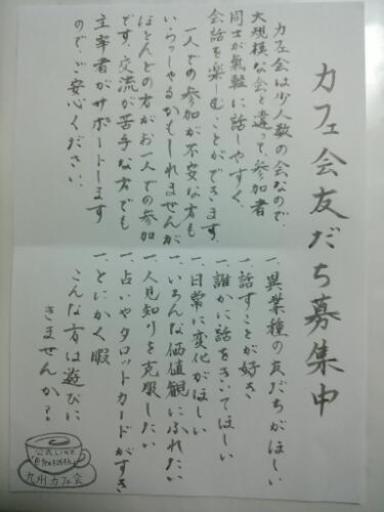 カフェ会友だち募集中
カフェ会は少人数の会なので、
大規模な会と違って、参加者
同士が気軽に話しやすく、
会話を楽しむことができます。
一人での参加が不安な方も
いらっしゃるかもしれませんが
ほとんどの方がお一人での参加
です。交流が苦手な方でも
主宰者がサポートします
ので、ご安心ください。
一、異業種の友だちがほしい
一、話すことが好き
一、誰かに話をきいてほしい
一、日常に変化がほしい
一、いろんな価値観にふれたい
一、人見知りを克服したい
一、占いやタロットカードがすき
一、とにかく暇
こんな方は遊びに
きませんか？
公式LINE
九州カフェ会